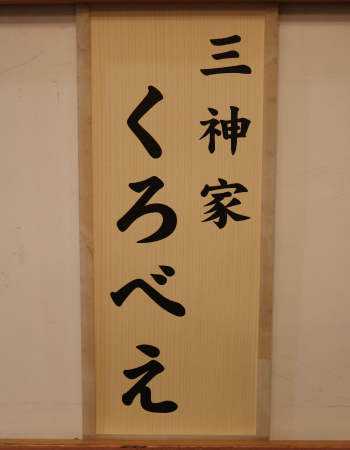 三神家
くろべえ